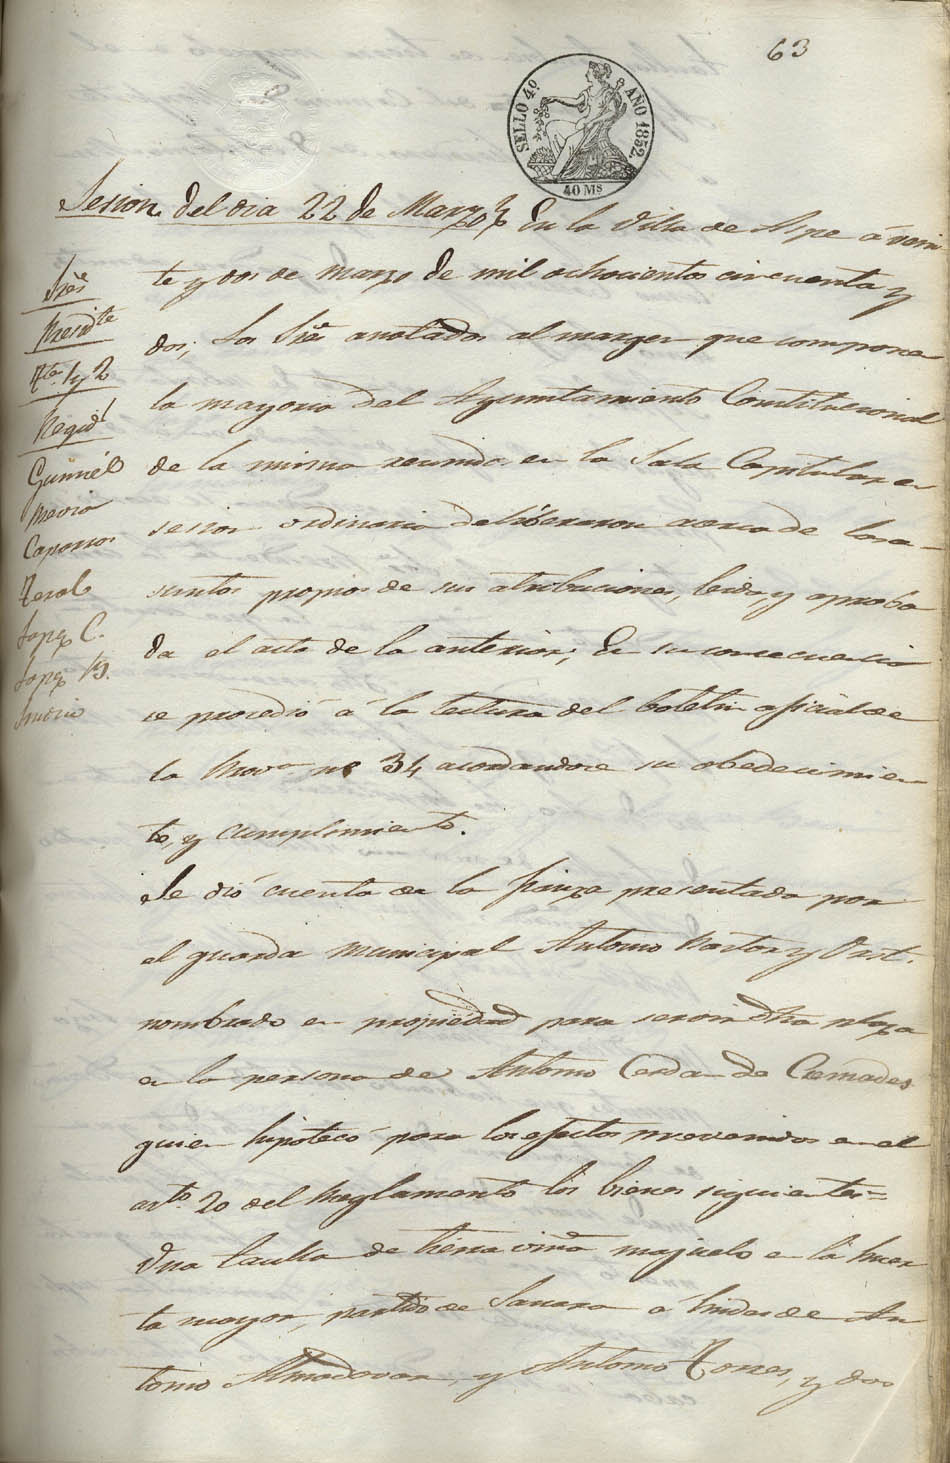 63
SELLO 4º AÑO 1852.
40 Ms
Sesion del dia 22 de Marzo En la Villa de Aspe á vein
te y dos de marzo de mil ochocientos cincuenta y
dos; Los Sres anotados al margen que componen
la mayoria del Ayuntamiento Constitucional
de la misma reunidos en la Sala Capitular en
sesion ordinaria deliberaron acerca de los a-
suntos propios de sus atribuciones, leida, y aproba
da el acta de la anterior; En su consecuencia
se procedió á la lectura del boletin oficial de
la Prova nº 34 acordandose su obedecimien
to, y cumplimiento.
Se dió cuenta de la fianza presentada por
el guarda municipal Antonio Pastor y Prat.
nombrado en propiedad para servir dha plaza
en la persona de Antonio Cerdan de Cremades
quien hipotecó para los efectos prevenidos en el
arto. 20 del Reglamento los bienes siguientes=
Una taulla de tierra viña majuelo en la huer
ta mayor, partido de á lindes de An
tonio Almodovar, y Antonio Torres, y dos
Sres
Presidte
Tte. 1 y 2
Regid
Gumiel
Caparros
Terol
Lopez C.
Lopez B.